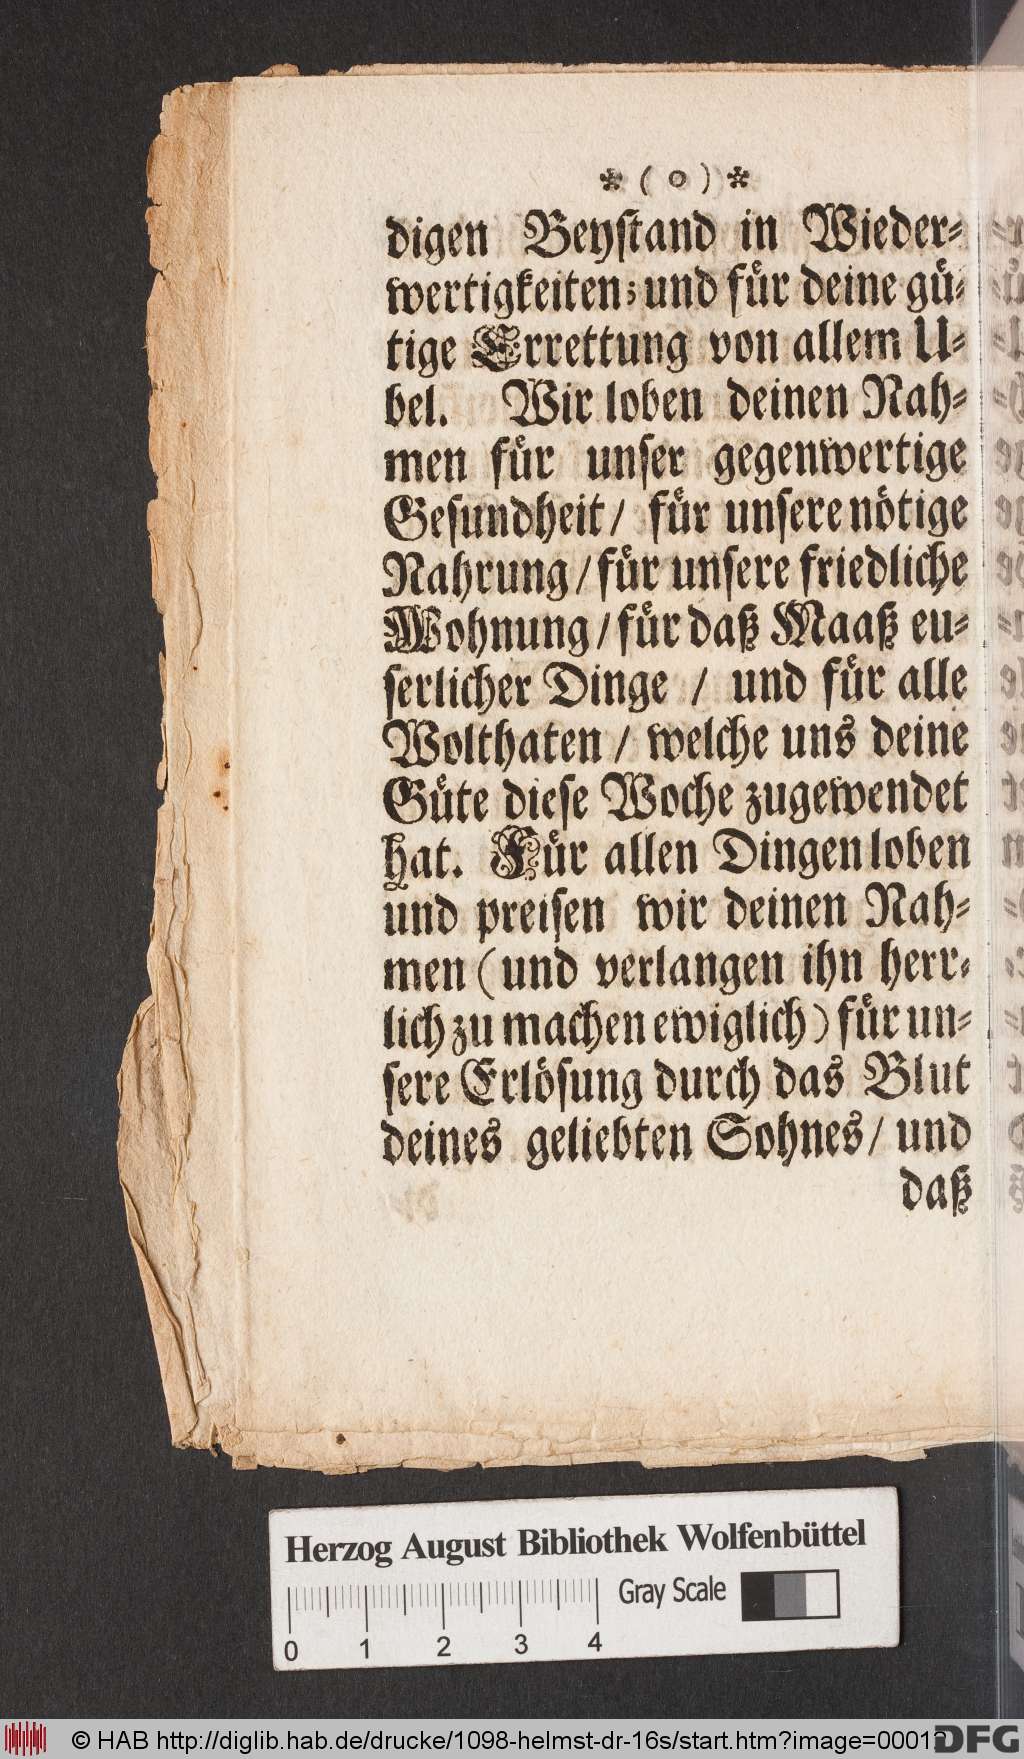 * ( o ) *
digen Beyſtand in Wieder⸗
wertigkeiten; und fuͤr deine guͤ⸗
tige Errettung von allem U⸗
bel. Wir loben deinen Nah⸗
men fuͤr unſer gegenwertige
Geſundheit / fuͤr unſere noͤtige
Nahrung / fuͤr unſere friedliche
Wohnung / fuͤr daß Maaß eu⸗
ſerlicher Dinge / und fuͤr alle
Wolthaten / welche uns deine
Guͤte dieſe Woche zugewendet
hat. Fuͤr allen Dingen loben
und preiſen wir deinen Nah⸗
men (und verlangen ihn herr⸗
lich zu machen ewiglich) fuͤr un⸗
ſere Erloͤſung durch das Blut
deines geliebten Sohnes / und
daß
Herzog August Bibliothek Wolfenbüttel
Gray Scale
0 1 2 3 4
© HAB http://diglib.hab.de/drucke/1098-helmst-dr-16s/start.htm?image=00012
DFG